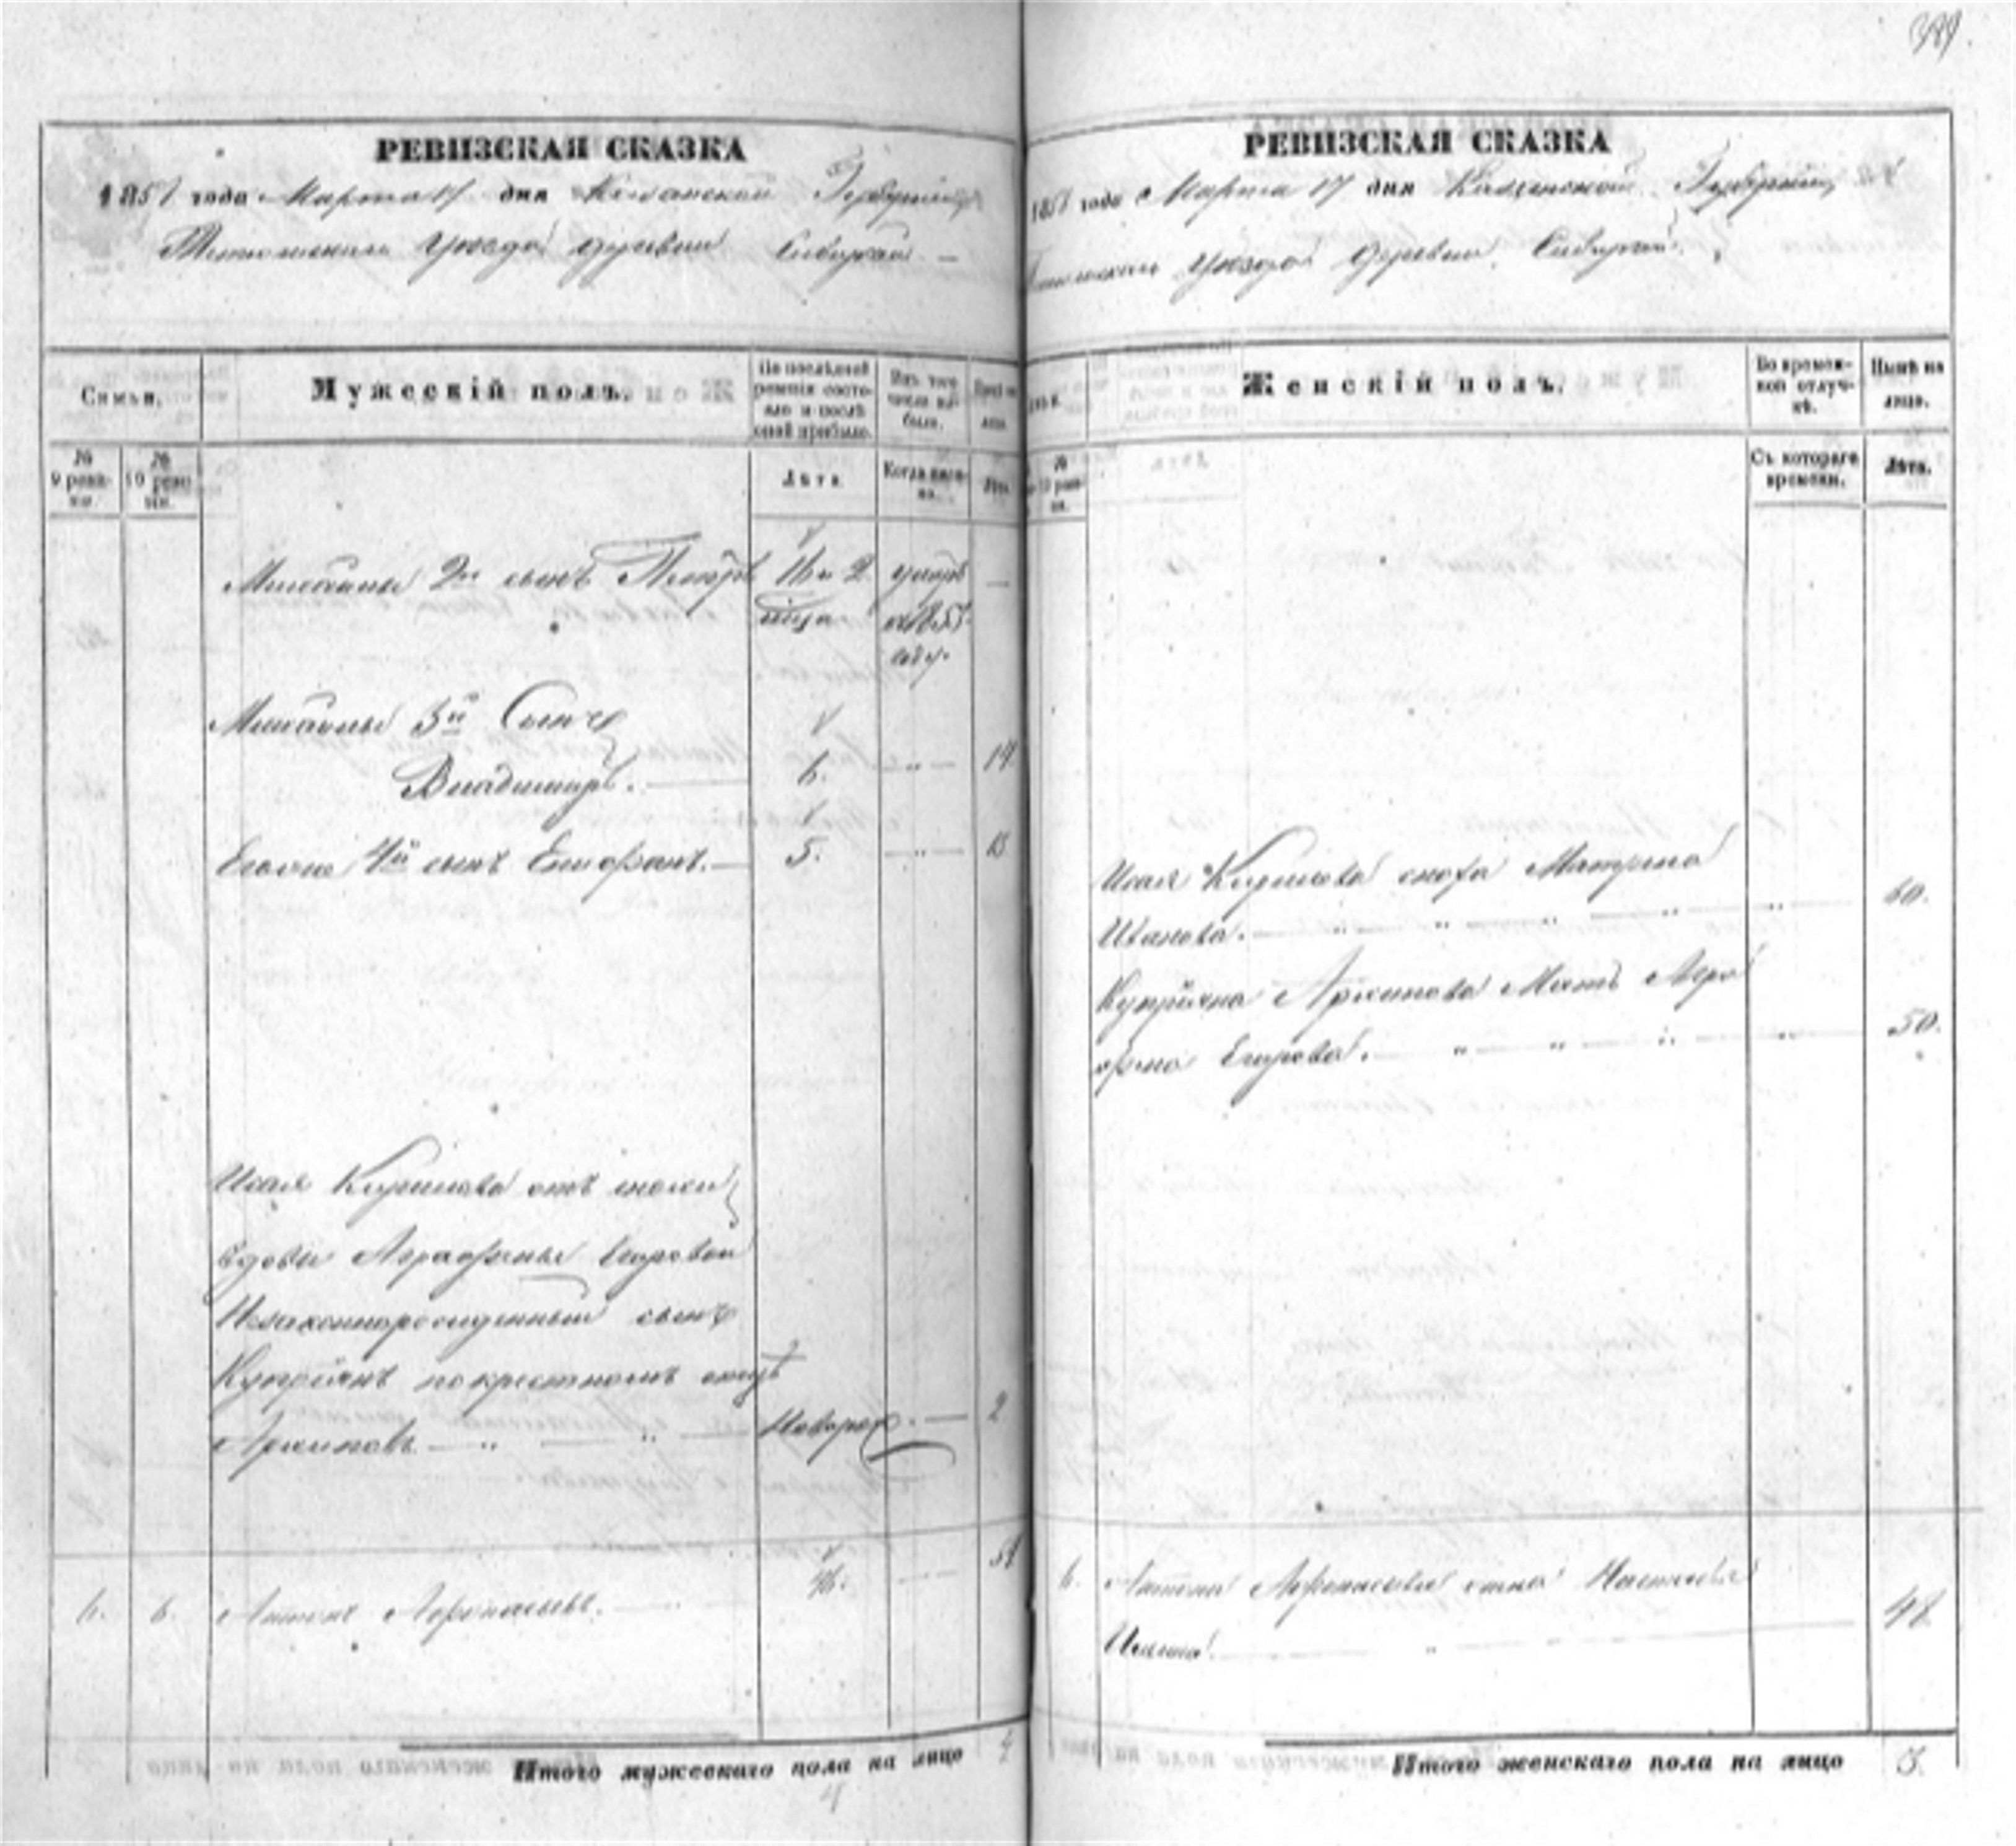 389.
РЕВИЗСКАЯ СКАЗКА
1858 года Марта 17 дня Казанской Губернии,
Тетюшскаго Уезда деревни
Семьи.
Мужескій полъ.
По послѣдней ревизіи состояло и послѣ оной прибыло.
Изъ того числа выбыло.
Нынѣ на лицо.
№ 9 ревизіи.
№ 10 ревизіи.
Лѣта.
Когда именно.
Лѣта.
2й сынъ Петръ 16 и 2 умеръ —
въ
году.
3й Сынъ
Владимиръ. 6. 14
4й сынъ 5. 13
Исая Кирилова отъ снохи
вдовы Аграфены Егоровой
Незаконнорожденный сынъ
Купріянъ по крестномъ отцѣ
Архиповъ Новорож. 2
6. 6. Антонъ Афонасьевъ. 46. 54
Итого мужескаго пола на лицо 4
4
РЕВИЗСКАЯ СКАЗКА
1858 года Марта 17 дня Казанской Губерніи,
Тетюшскаго Уезда деревни
Семьи.
Женскій полъ.
Во временной отлучкѣ.
Нынѣ на лицо.
№ 10 ревизіи.
Съ котораго времени.
Лѣта.
Исая Кирилова сноха Матрена
Иванова. 60.
Купріяна Архипова Мать Агра
фена Егорова. 50.
6. Антона Афонасьева жена Настасья
48
Итого женскаго пола на лицо 3.